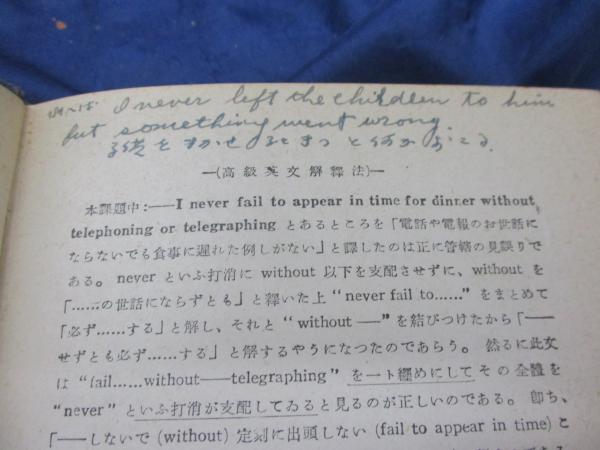 例へば I never left the children to him
but something went wrong.
子供をまかせるときっと何かおこる。
—(高級英文解釋法)—
本課題中:——I never fail to appear in time for dinner without
telephoning or telegraphing とあるところを「電話や電報のお世話に
ならないでも食事に遲れた例しがない」と譯したのは正に管轄の見誤りで
ある。 never といふ打消に without 以下を支配させずに、without を
「……の世話にならずとも」と釋いた上 “never fail to……” をまとめて
「必ず……する」と解し、それと “without —” を結びつけたから「——
せずとも必ず……する」と解するやうになつたのであらう。 然るに此文
は “fail……without——telegraphing” を一ト纒めにして その全體を
“never” といふ打消が支配してゐると見るのが正しいのである。 卽ち、
「——しないで (without) 定刻に出頭しない (fail to appear in time) こ